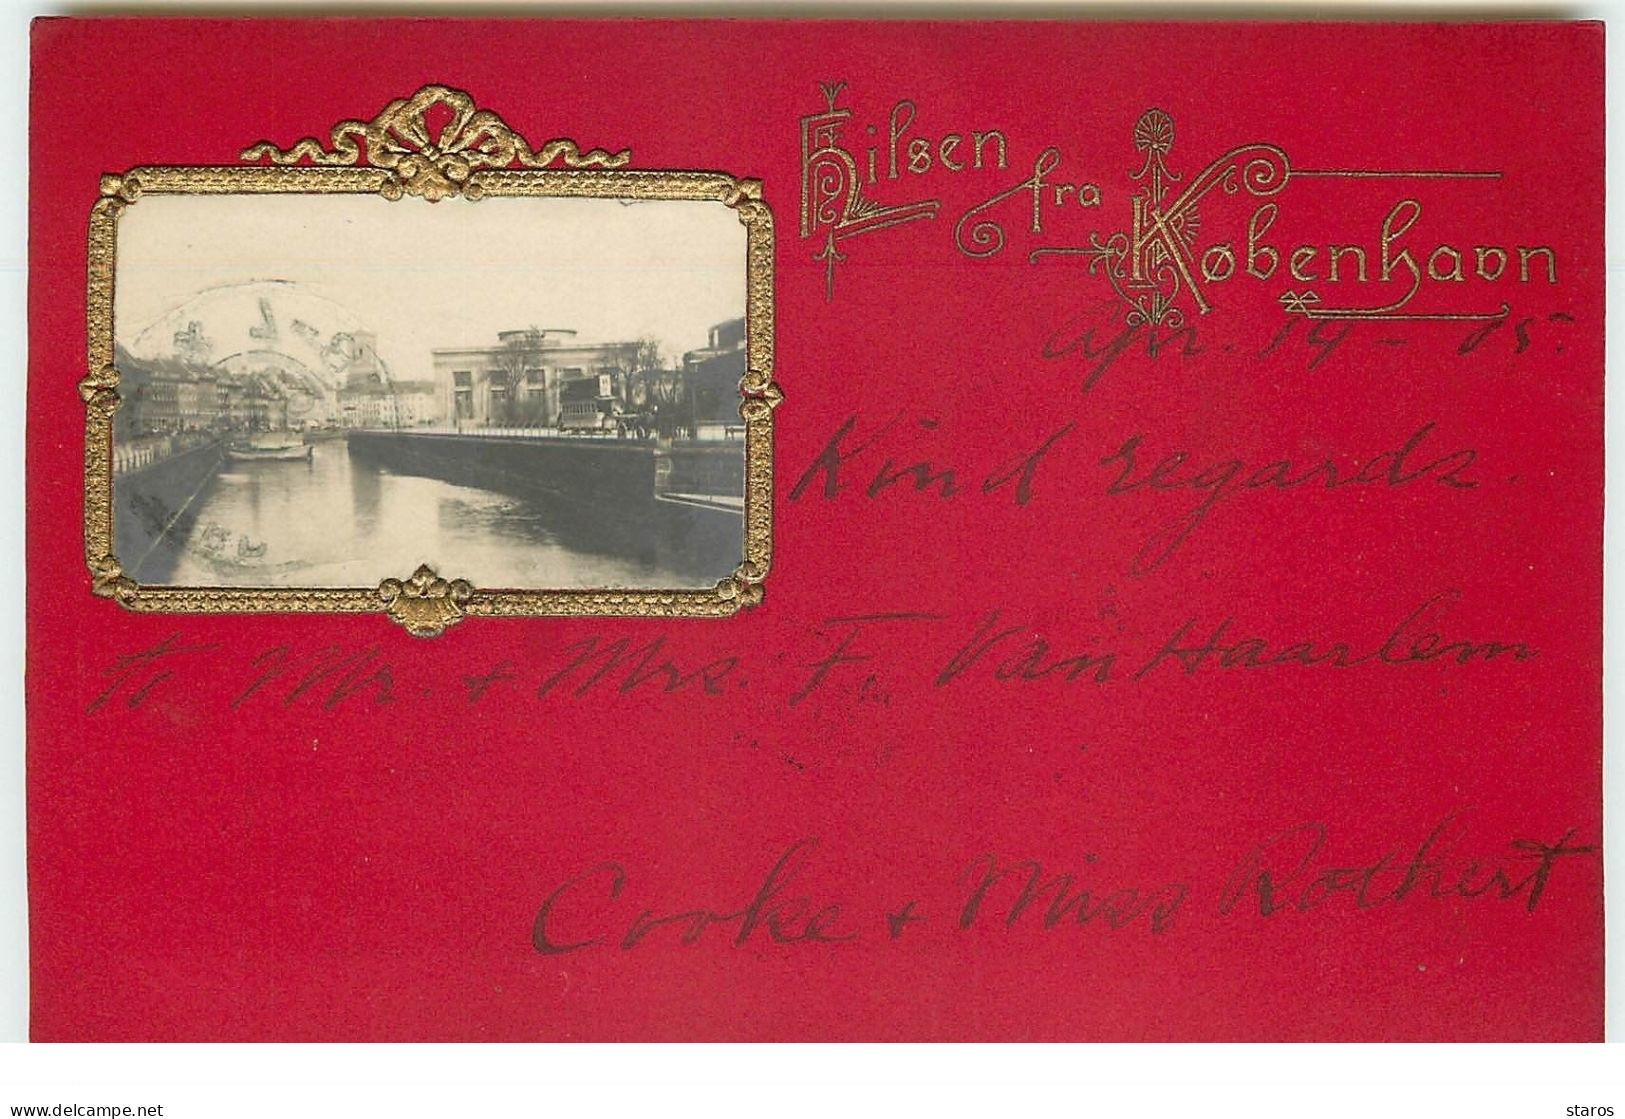 Hilsen fra København
Apr. 14 - 05.
Kind regards.
to Mr. + Mrs. F. Van Haarlem
Cooke + Miss Rothert
www.delcampe.net
staros